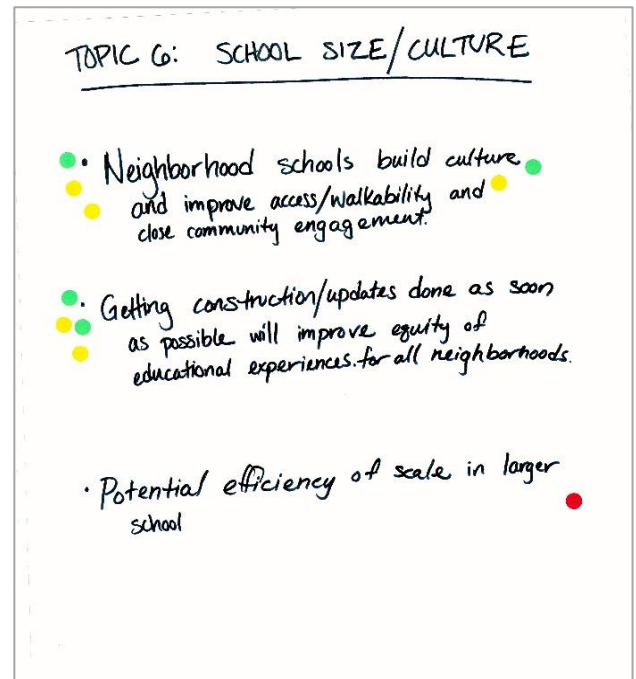 TOPIC 6: SCHOOL SIZE/CULTURE
• Neighborhood schools build culture
and improve access/walkability and
close community engagement.
• Getting construction/updates done as soon
as possible will improve equity of
educational experiences.for all neighborhoods.
• Potential efficiency of scale in larger
school